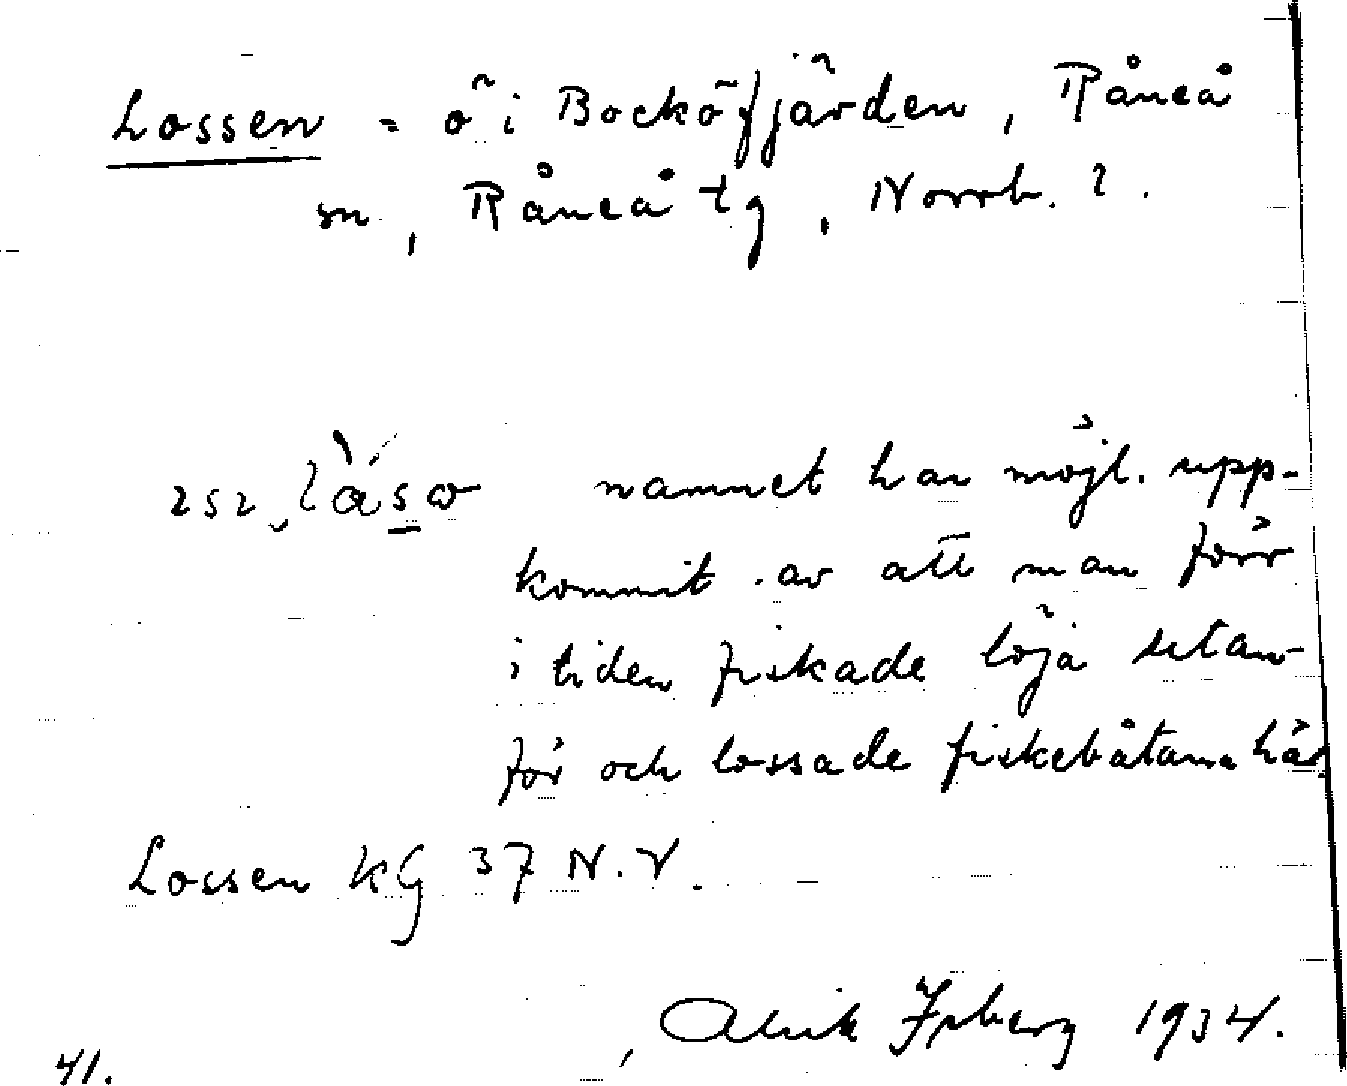 Lossen = ö i Bocköfjärden, Råneå
sn, Råneå tg, Norrb. l.
252
namnet har möjl. upp-
kommit av att man förr
i tiden fiskade löja utan-
för och lossade fiskebåtarna här
Lossen KG 37 N.V.
1934.
41.